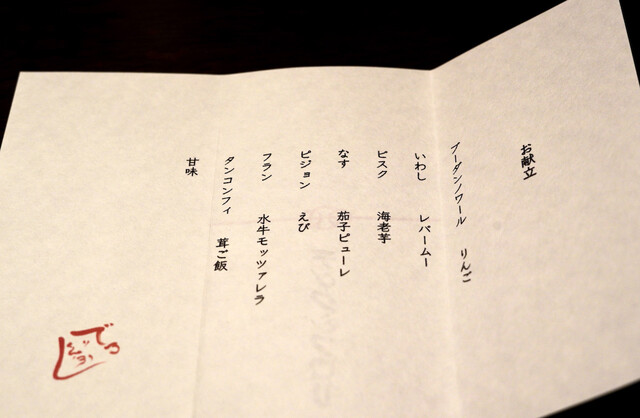 お献立
ブーダンノワール りんご
いわし レバームー
ビスク 海老芋
なす 茄子ピューレ
ピジョン えび
フラン 水牛モッツァレラ
タンコンフィ 茸ご飯
甘味